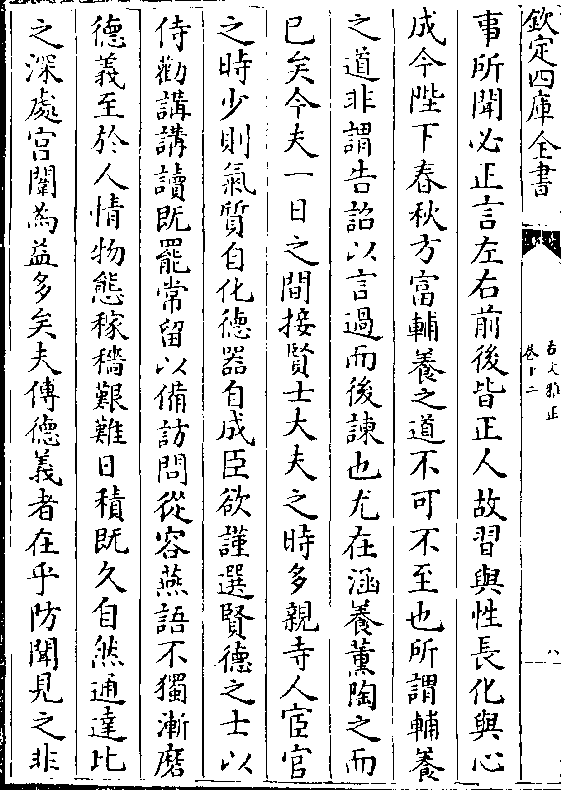 欽定四庫全書
古文雅正
卷十二
八
事所聞必正言左右前後皆正人故習與性長化與心
成今陛下春秋方富輔養之道不可不至也所謂輔養
之道非謂告詔以言過而後諫也尤在涵養薰陶之而
已矣今夫一日之間接賢士大夫之時多親寺人宦官
之時少則氣質自化德器自成臣欲謹選賢德之士以
侍勸講講讀既罷常留以備訪問從容燕語不獨漸磨
德義至於人情物態稼穡艱難日積既久自然通達比
之深處宮闈為益多矣夫傅德義者在乎防聞見之非